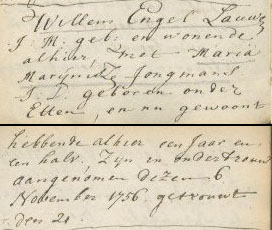 Willem Engel Lauwe
J: M: geb: en wonende
alhier, met Maria
Marijnisse Jongmans
J: D: geboren onder
Etten, en nu gewoont
hebbende alhier een Jaar en
een half, Zijn in ondertrouw
aangenomen dezen 6
November 1756 getrouwt
den 21